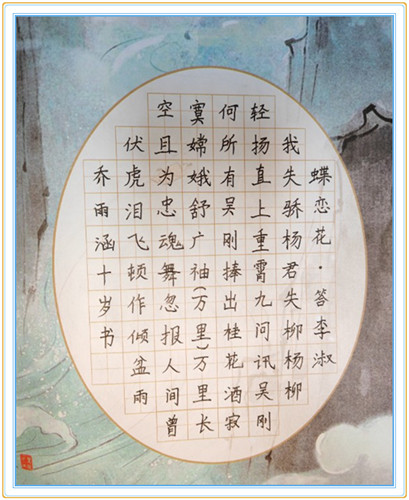 蝶恋花·答李淑
我失骄杨君失柳杨柳
轻扬直上重霄九问讯吴刚
何所有吴刚捧出桂花酒寂
寞嫦娥舒广袖(万里)万里长
空且为忠魂舞忽报人间曾
伏虎泪飞顿作倾盆雨
乔雨涵十岁书